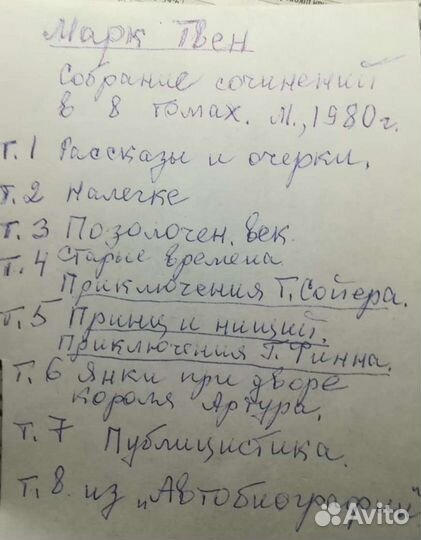 Марк Твен
Собрание сочинений
в 8 томах. М., 1980г.
т.1 Рассказы и очерки.
т.2 Налегке
т.3 Позолочен. век.
т.4 Старые времена
Приключения Т.Сойера.
т.5 Принц и нищий.
Приключения Г.Финна.
т.6 Янки при дворе
короля Артура.
т.7 Публицистика.
т.8. из „Автобиографии"
Avito